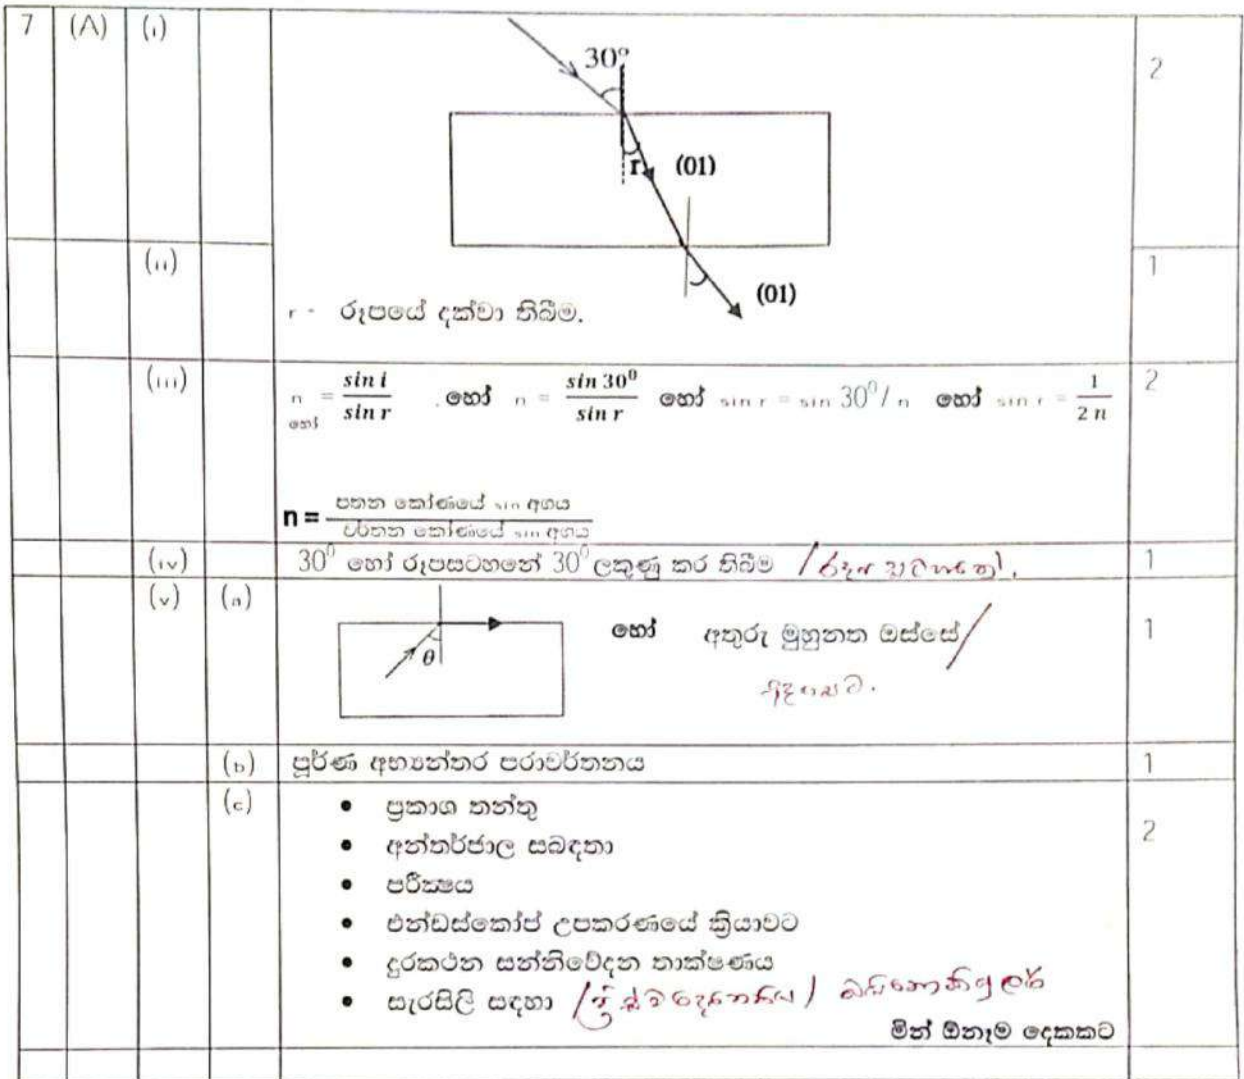 7 (A) (i) 30° 2
r (01)
(ii) (01) 1
r - රූපයේ දක්වා තිබීම.
(iii) n = sin i / sin r හෝ n = sin 30⁰ / sin r හෝ sin r = sin 30⁰/ n හෝ sin r = 1 / 2 n 2
හෝ
n = පතන කෝණයේ sin අගය / වර්තන කෝණයේ sin අගය
(iv) 30⁰ හෝ රූපසටහනේ 30⁰ ලකුණු කර තිබීම 1
(v) (a) θ හෝ අතුරු මුහුනත ඔස්සේ / 1
(b) පූර්ණ අභ්‍යන්තර පරාවර්තනය 1
(c) • ප්‍රකාශ තන්තු 2
• අන්තර්ජාල සබඳතා
• පරීක්‍ෂය
• එන්ඩස්කෝප් උපකරණයේ ක්‍රියාවට
• දුරකථන සන්නිවේදන තාක්ෂණය
• සැරසිලි සඳහා
මින් ඕනෑම දෙකකට